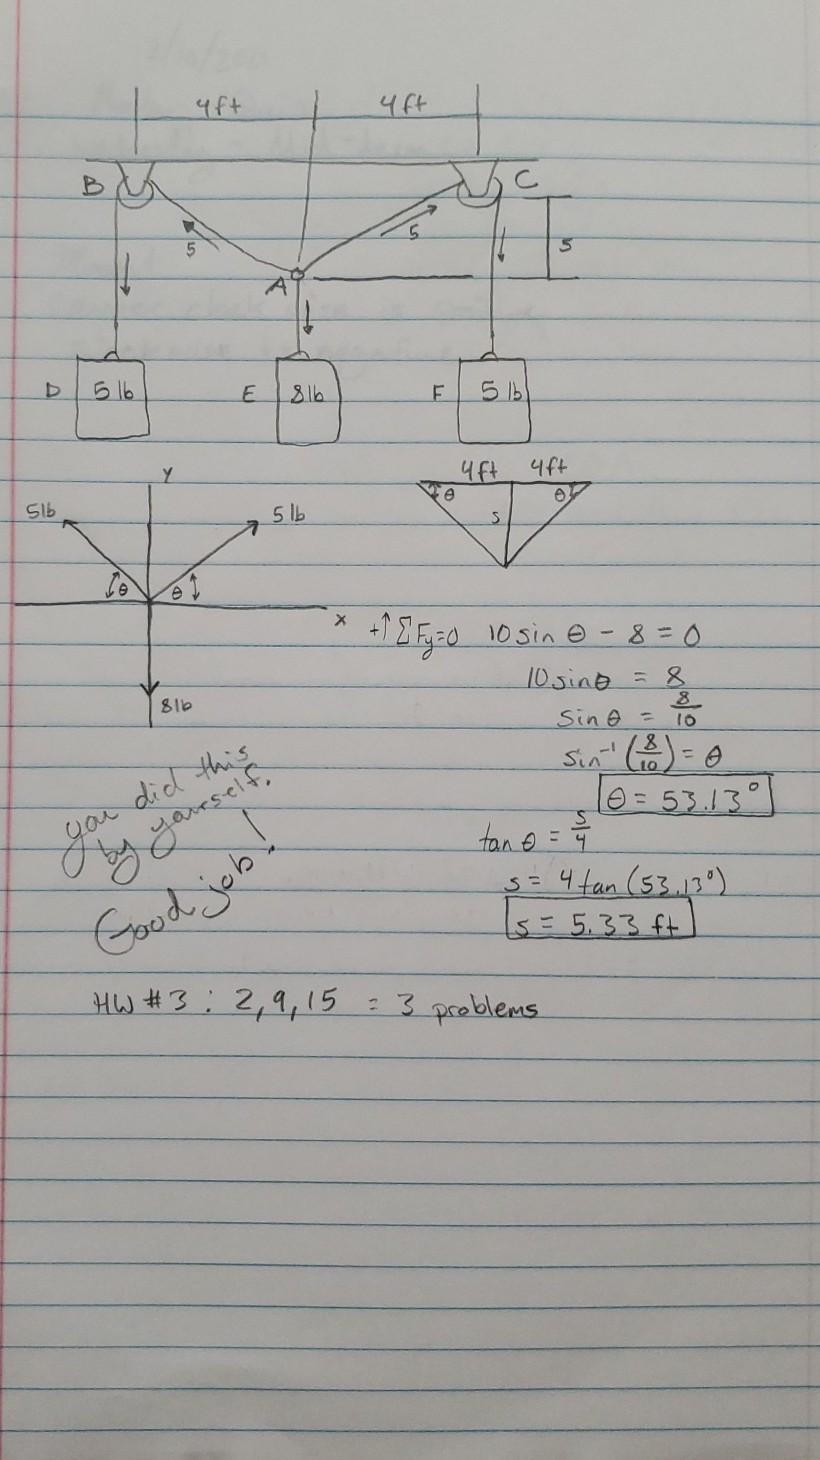 4ft 4ft
B C
5 5 s
A
D 5 lb E 8 lb F 5 lb
Y 4ft 4ft
θ θ
s
5lb 5 lb
θ θ
x
8lb
+↑ΣFy=0 10 sin θ - 8 = 0
10 sinθ = 8
sin θ = 8/10
sin⁻¹ (8/10) = θ
θ = 53.13°
tan θ = s/4
s = 4 tan (53.13°)
s = 5.33 ft
you did this
by yourself.
Good job!
HW #3 : 2,9,15 = 3 problems